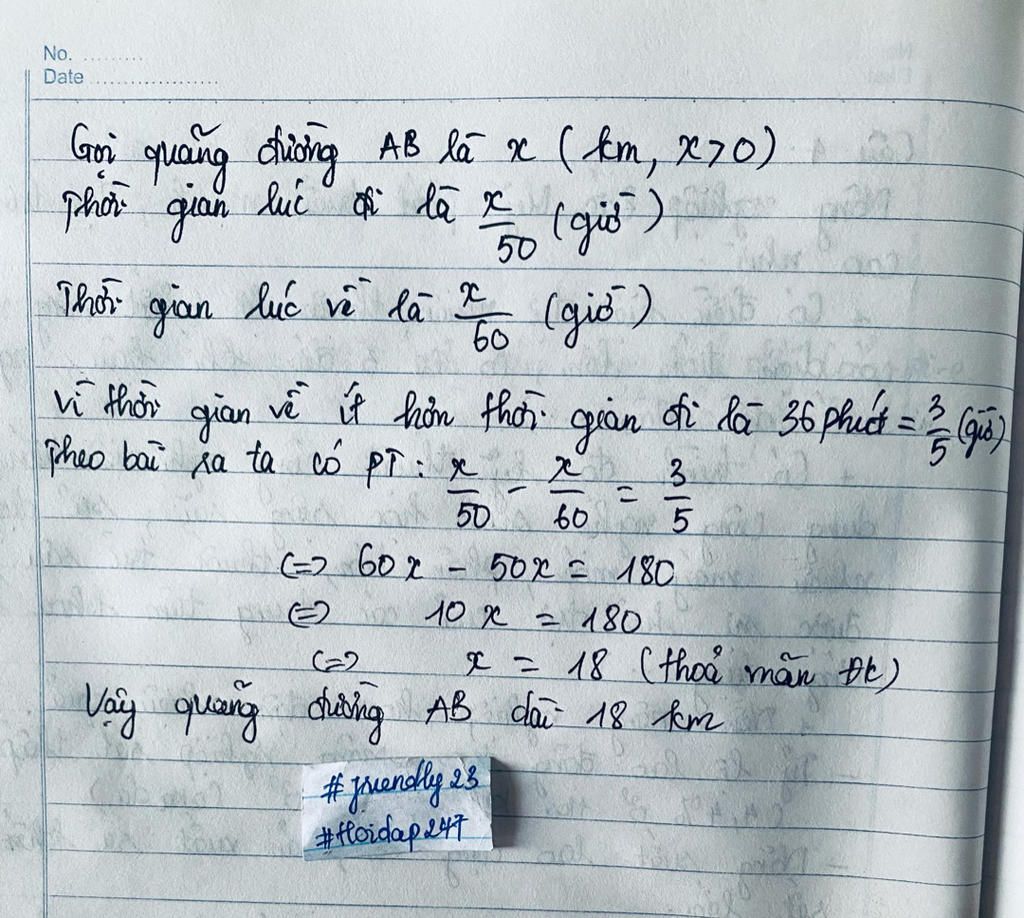 No. .........
Date ...................
Gọi quãng đường AB là x (km, x>0)
Thời gian lúc đi là x/50 (giờ)
Thời gian lúc về là x/60 (giờ)
Vì thời gian về ít hơn thời gian đi là 36 phút = 3/5 (giờ)
Theo bài ra ta có PT: x/50 - x/60 = 3/5
<=> 60x - 50x = 180
<=> 10x = 180
<=> x = 18 (thoả mãn ĐK)
Vậy quãng đường AB dài 18 km
#friendly23
#Hoidap247